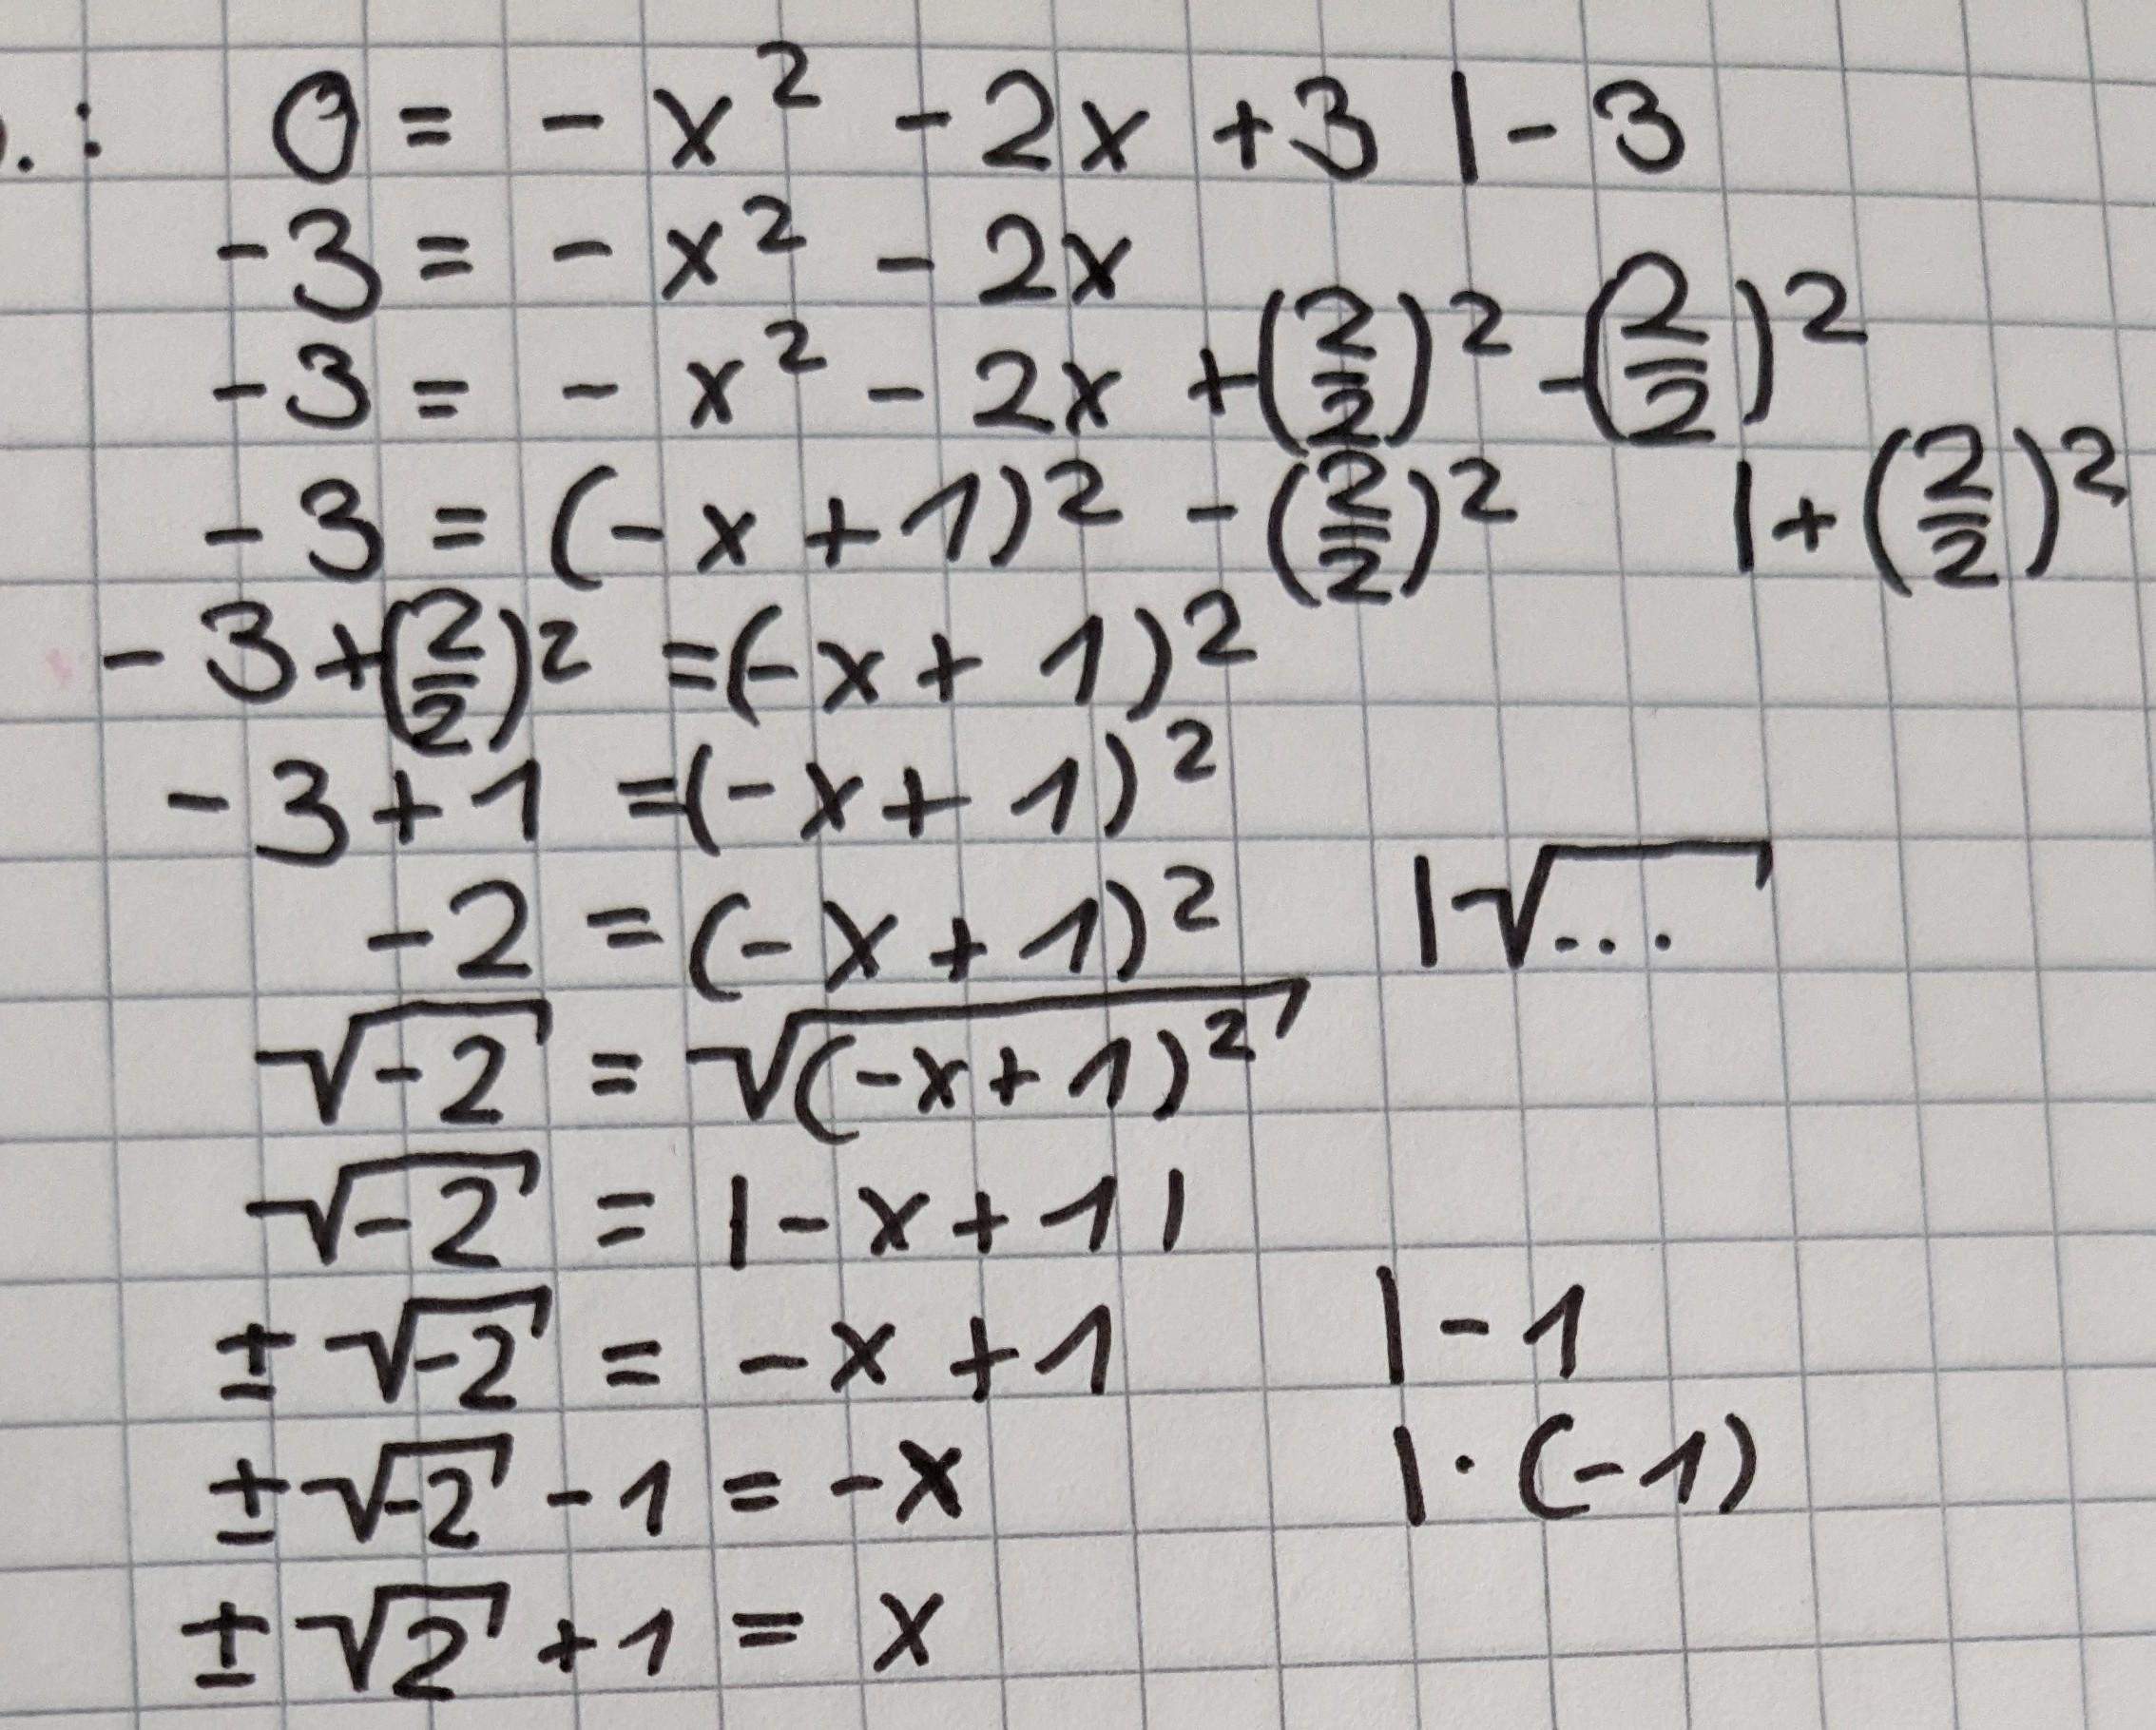 . : 0 = - x² - 2x + 3 | - 3
- 3 = - x² - 2x
- 3 = - x² - 2x + (2/2)² - (2/2)²
- 3 = (- x + 1)² - (2/2)² | + (2/2)²
- 3 + (2/2)² = (- x + 1)²
- 3 + 1 = (- x + 1)²
- 2 = (- x + 1)² | √...
√-2 = √(-x + 1)²
√-2 = | - x + 1 |
± √-2 = - x + 1 | - 1
± √-2 - 1 = - x | · (-1)
± √2 + 1 = x